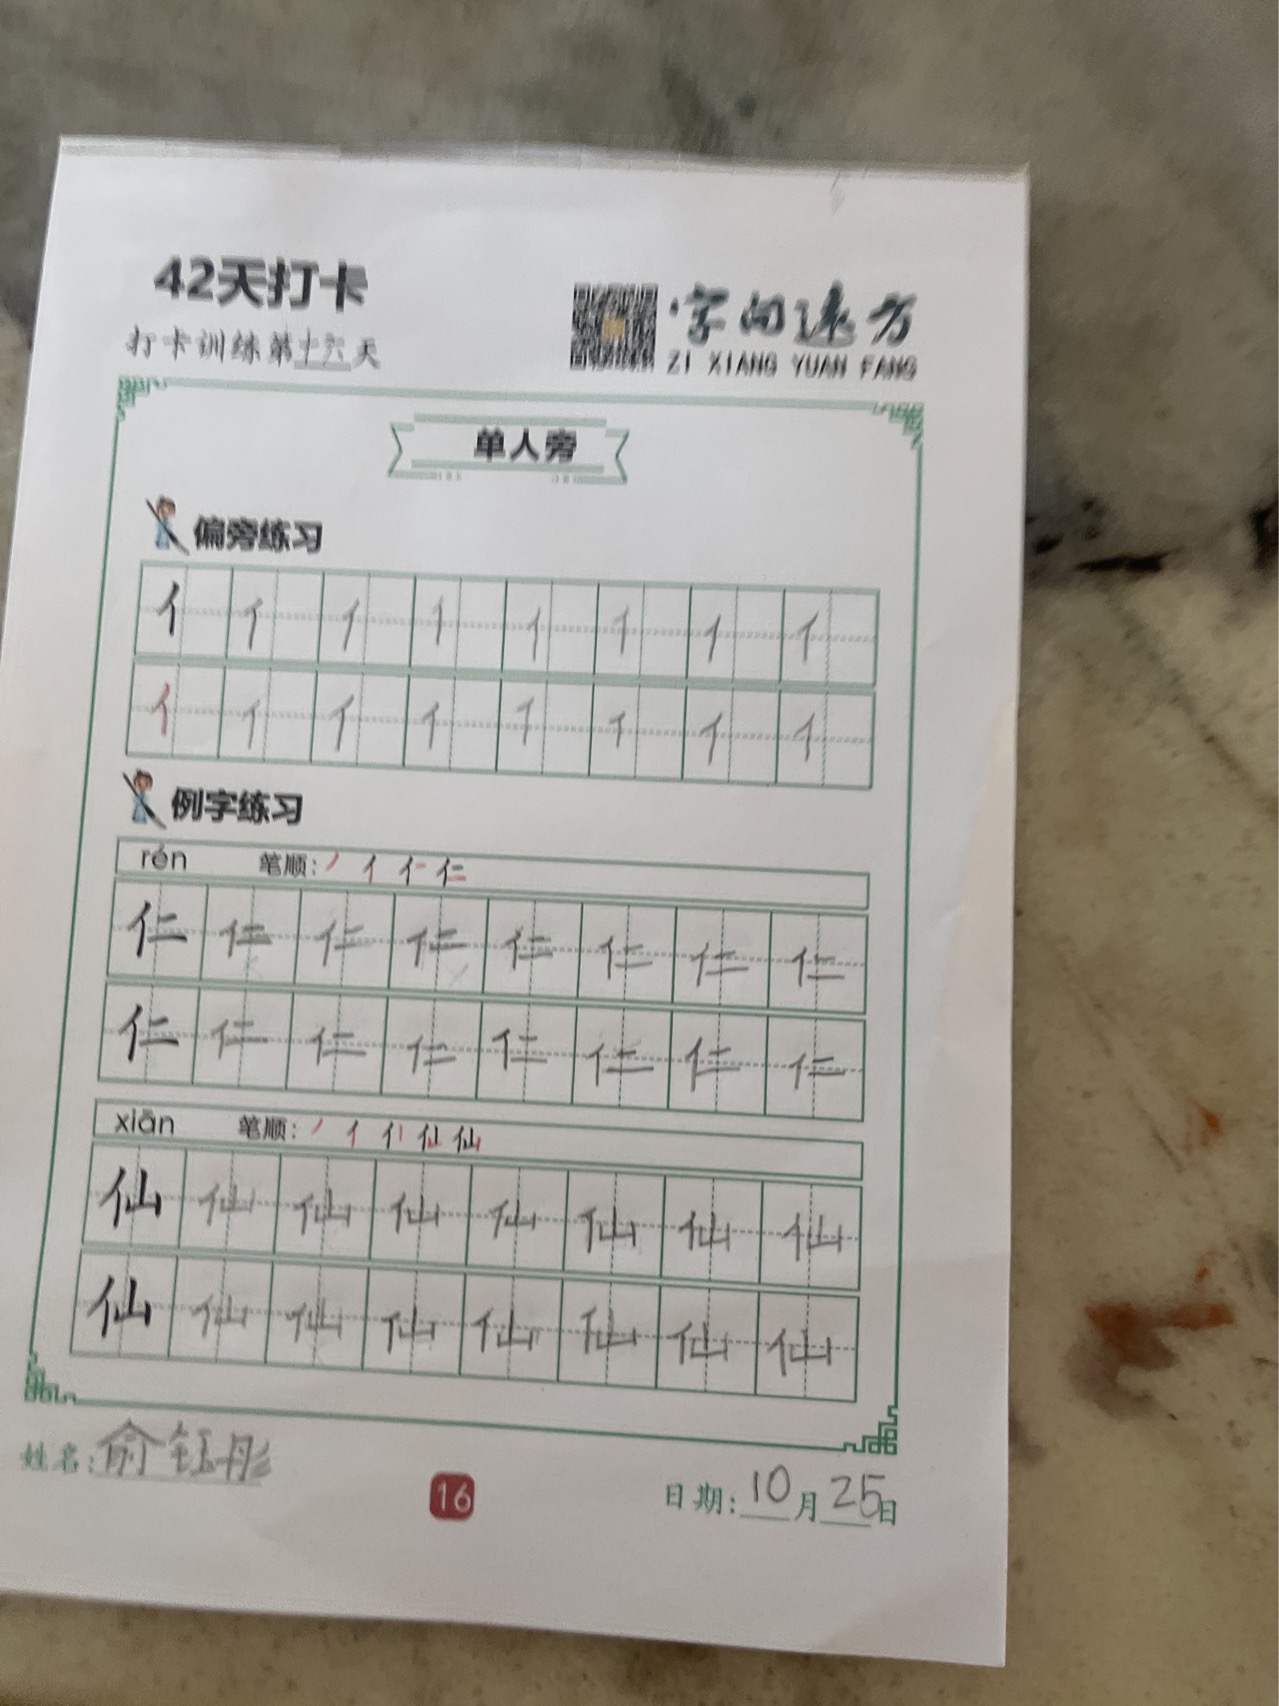 42天打卡
字向远方
打卡训练第十六天
ZI XIANG YUAN FANG
单人旁
偏旁练习
亻 亻 亻 亻 亻 亻 亻 亻
亻 亻 亻 亻 亻 亻 亻 亻
例字练习
rén 笔顺: 丿 亻 仁 仁
仁 仁 仁 仁 仁 仁 仁 仁
仁 仁 仁 仁 仁 仁 仁 仁
xiān 笔顺: 丿 亻 仙 仙
仙 仙 仙 仙 仙 仙 仙 仙
仙 仙 仙 仙 仙 仙 仙 仙
姓名: 俞钰彤
16
日期: 10月25日